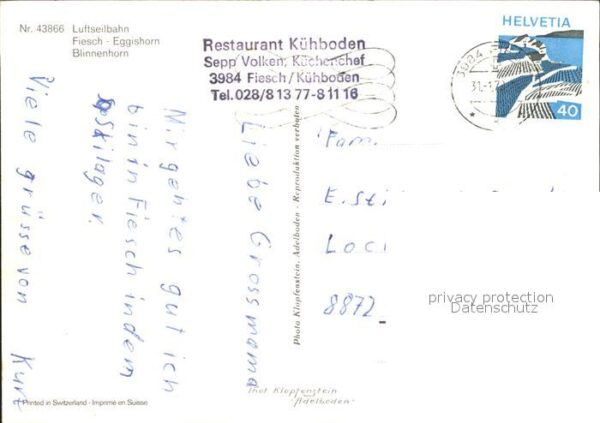 Nr. 43866 Luftseilbahn
Fiesch - Eggishorn
Blinnenhorn
Restaurant Kühboden
Sepp Volken, Küchenchef
3984 Fiesch/Kühboden
Tel. 028/8 13 77-8 11 16
HELVETIA
40
3984
31.-1.7
Liebe Grossmama
Mir geht es gut ich
bin in Fiesch in dem
Skilager.
Viele grüsse von Kurt
Photo Klopfenstein, Adelboden - Reproduktion verboten
Fam.
E. St
Loc
8872
privacy protection
Datenschutz
Phot Klopfenstein
"Adelboden"
Printed in Switzerland - Imprimé en Suisse